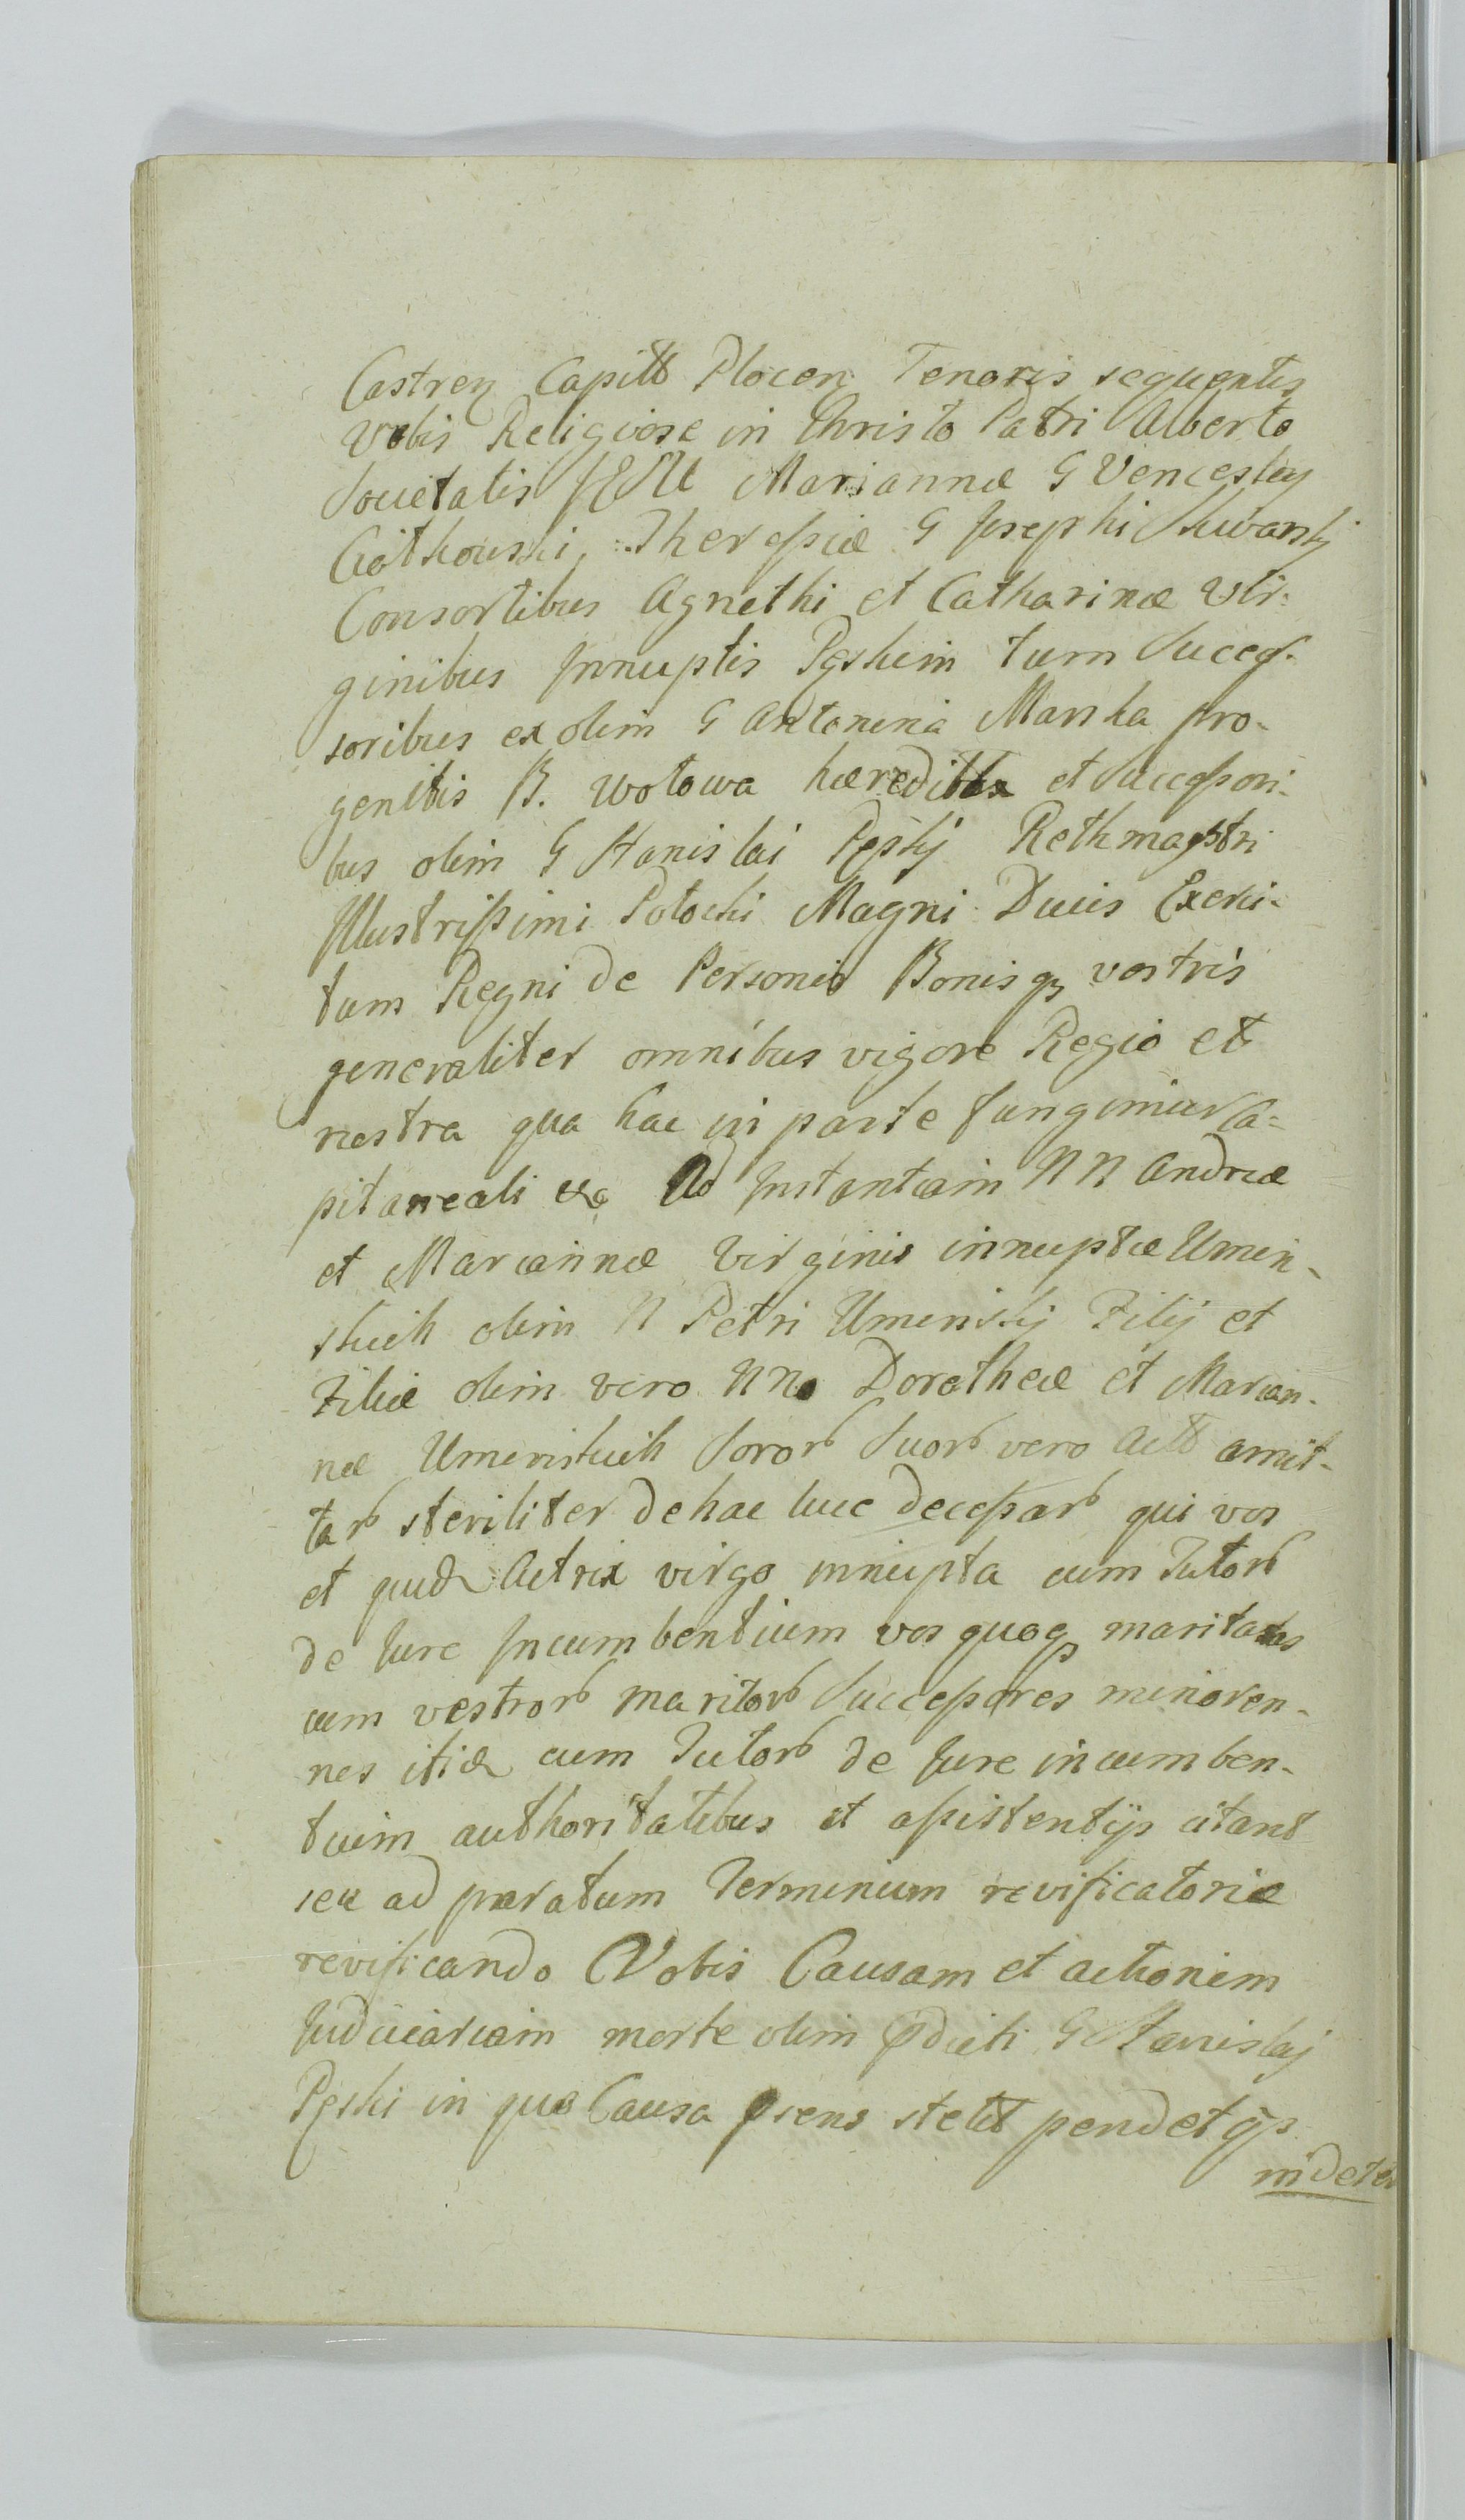 Castren Capitt Plocen Tenoris sequentis
Vobis Religiose in Christo Patri Alberto
Societatis JESU Mariannæ G Venceslay
Ciòthowski, Theressiæ G Josephi Skwarskj
Consortibus Agnethi et Catharinæ Vir:
ginibus Innuptis Pęskim tum Succes-
soribus ex olim G Antonina Manska pro-
genitis B. Wotowa hæreditbs et Successori-
bus olim G Stanislai Pęskj Rothmagistri
Illustrissimi Potocki Magni Ducis Exerci-
tum Regni de Personis Bonisq3 vestris
generaliter omnibus vigore Regio et
nostra qua hac in parte fungimur Ca-
pitaneali &c Ad Instantiam NN Andreæ
et Mariannæ Virginis innuptæ Umin-
skich olim N Petri Uminskj Filij et
Filiæ olim vero NN Dorotheæ et Marian-
næ Uminskich Soror Suor vero Actt amit-
tar steriliter de hac luce decessar qui vos
et quid Actrix virgo innupta cum Tutor
de Jure Incumbentium vos quoq maritatas
cum vestror maritor Successores minoren-
nes itid cum Tutor de Jure incumben-
tium authoritatibus et assistentijs citant
seu ad paratum Terminum revificatoriæ
revificando Vobis Causam et actionem
Judiciariam morte olim pdicti G Stanislaj
Pęski in qua Causa psens stetit pendetq3
indeter